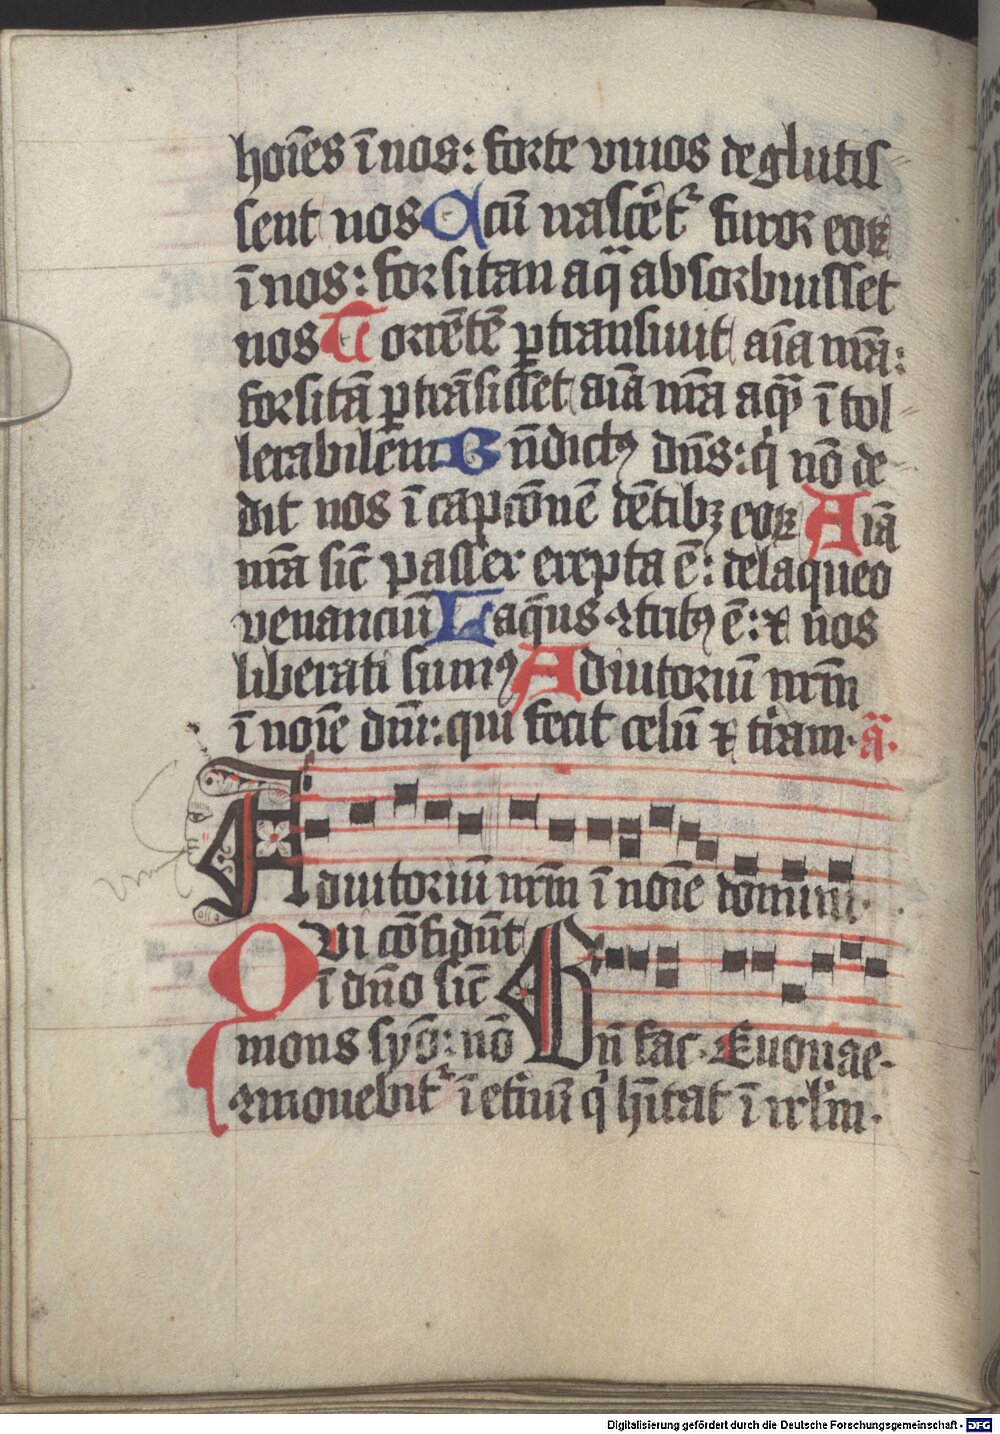 hoīes ī nos: forte viuos deglutis
sent nos Cū nascēt᷑ furor eoꝝ
ī nos: forsitan aqͣ absorbuisset
nos Torrētē ꝑtransiuit aīa nr̄a:
forsitā ꝑtrāsisset aīa nr̄a aqͣ ītol
lerabilem Bn̄dictꝰ dn̄s: qͥ nō de
dit nos ī capcōnē dētibꝫ eoꝝ Aīa
nr̄a sic̄ passer erepta ē: de laqueo
venanciū Laqueus ꝯtritꝰ ē: ⁊ nos
liberati sumꝰ Adiutoriū nrm̄
ī noīe dn̄i: qui fecit celū ⁊ tr̄am. a͞.
Adiutoriū nrm̄ ī noīe domini.
Qui cōfidūt
ī dn̄o sic̄
mons syō: nō Bn̄ fac. Euouae.
ꝯmouebit᷑ ī etn̄ū qͥ hītat ī irlm̄.
Digitalisierung gefördert durch die Deutsche Forschungsgemeinschaft - DFG